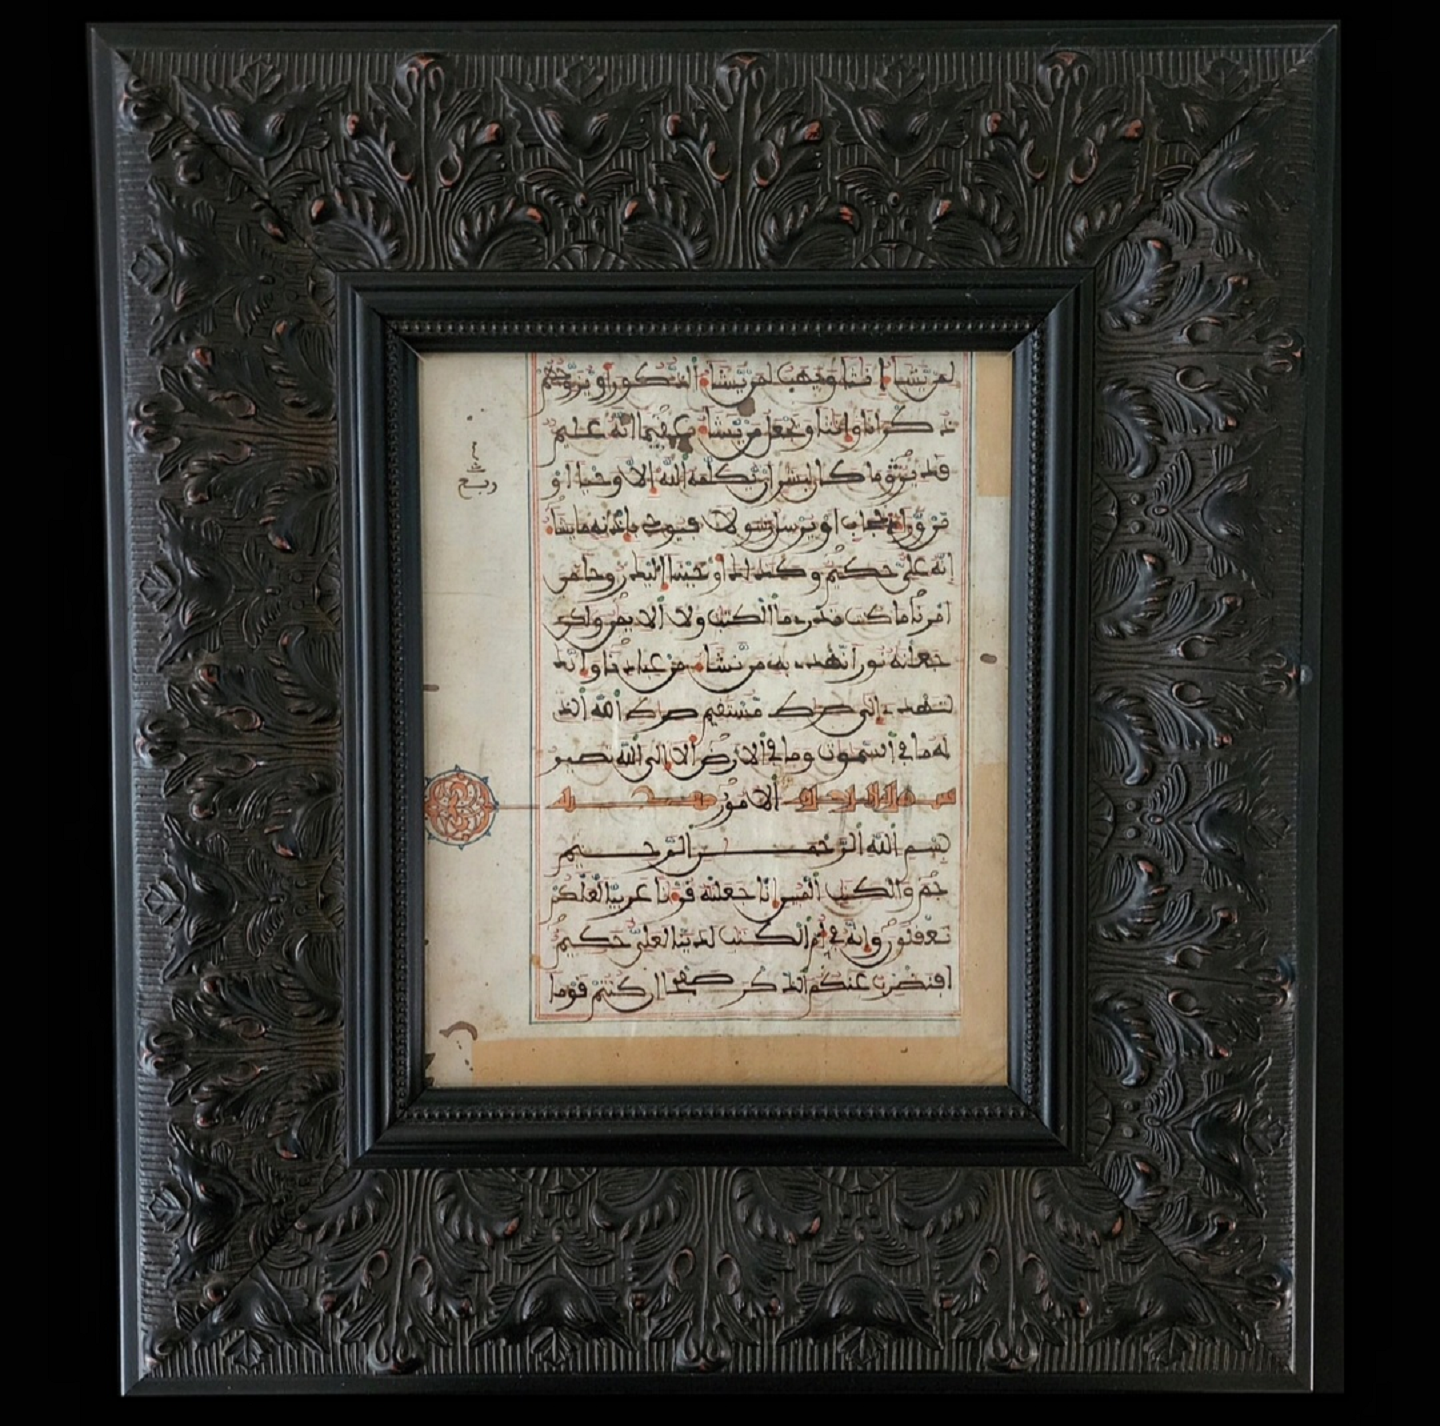 لمن يشاء إنثا ويهب لمن يشاء الذكور أو يزوجهم
ذكرانا وإنثا ويجعل من يشاء عقيما إنه عليم
قدير وما كان لبشر أن يكلمه الله إلا وحيا أو
من وراي حجاب أو يرسل رسولا فيوحي بإذنه ما يشاء
إنه علي حكيم وكذلك أوحينا إليك روحا من
أمرنا ما كنت تدري ما الكتب ولا الايمن ولكن
جعلنه نورا نهدي به من نشاء من عبادنا وإنك
لتهدي إلى صرط مستقيم صرط الله الذي
له ما في السموت وما في الارض ألا إلى الله تصير
الامور
بسم الله الرحمن الرحيم
حم والكتب المبين إنا جعلنه قرءنا عربيا لعلكم
تعقلون وإنه في أم الكتب لدينا لعلي حكيم
أفنضرب عنكم الذكر صفحا إن كنتم قوما
ربع